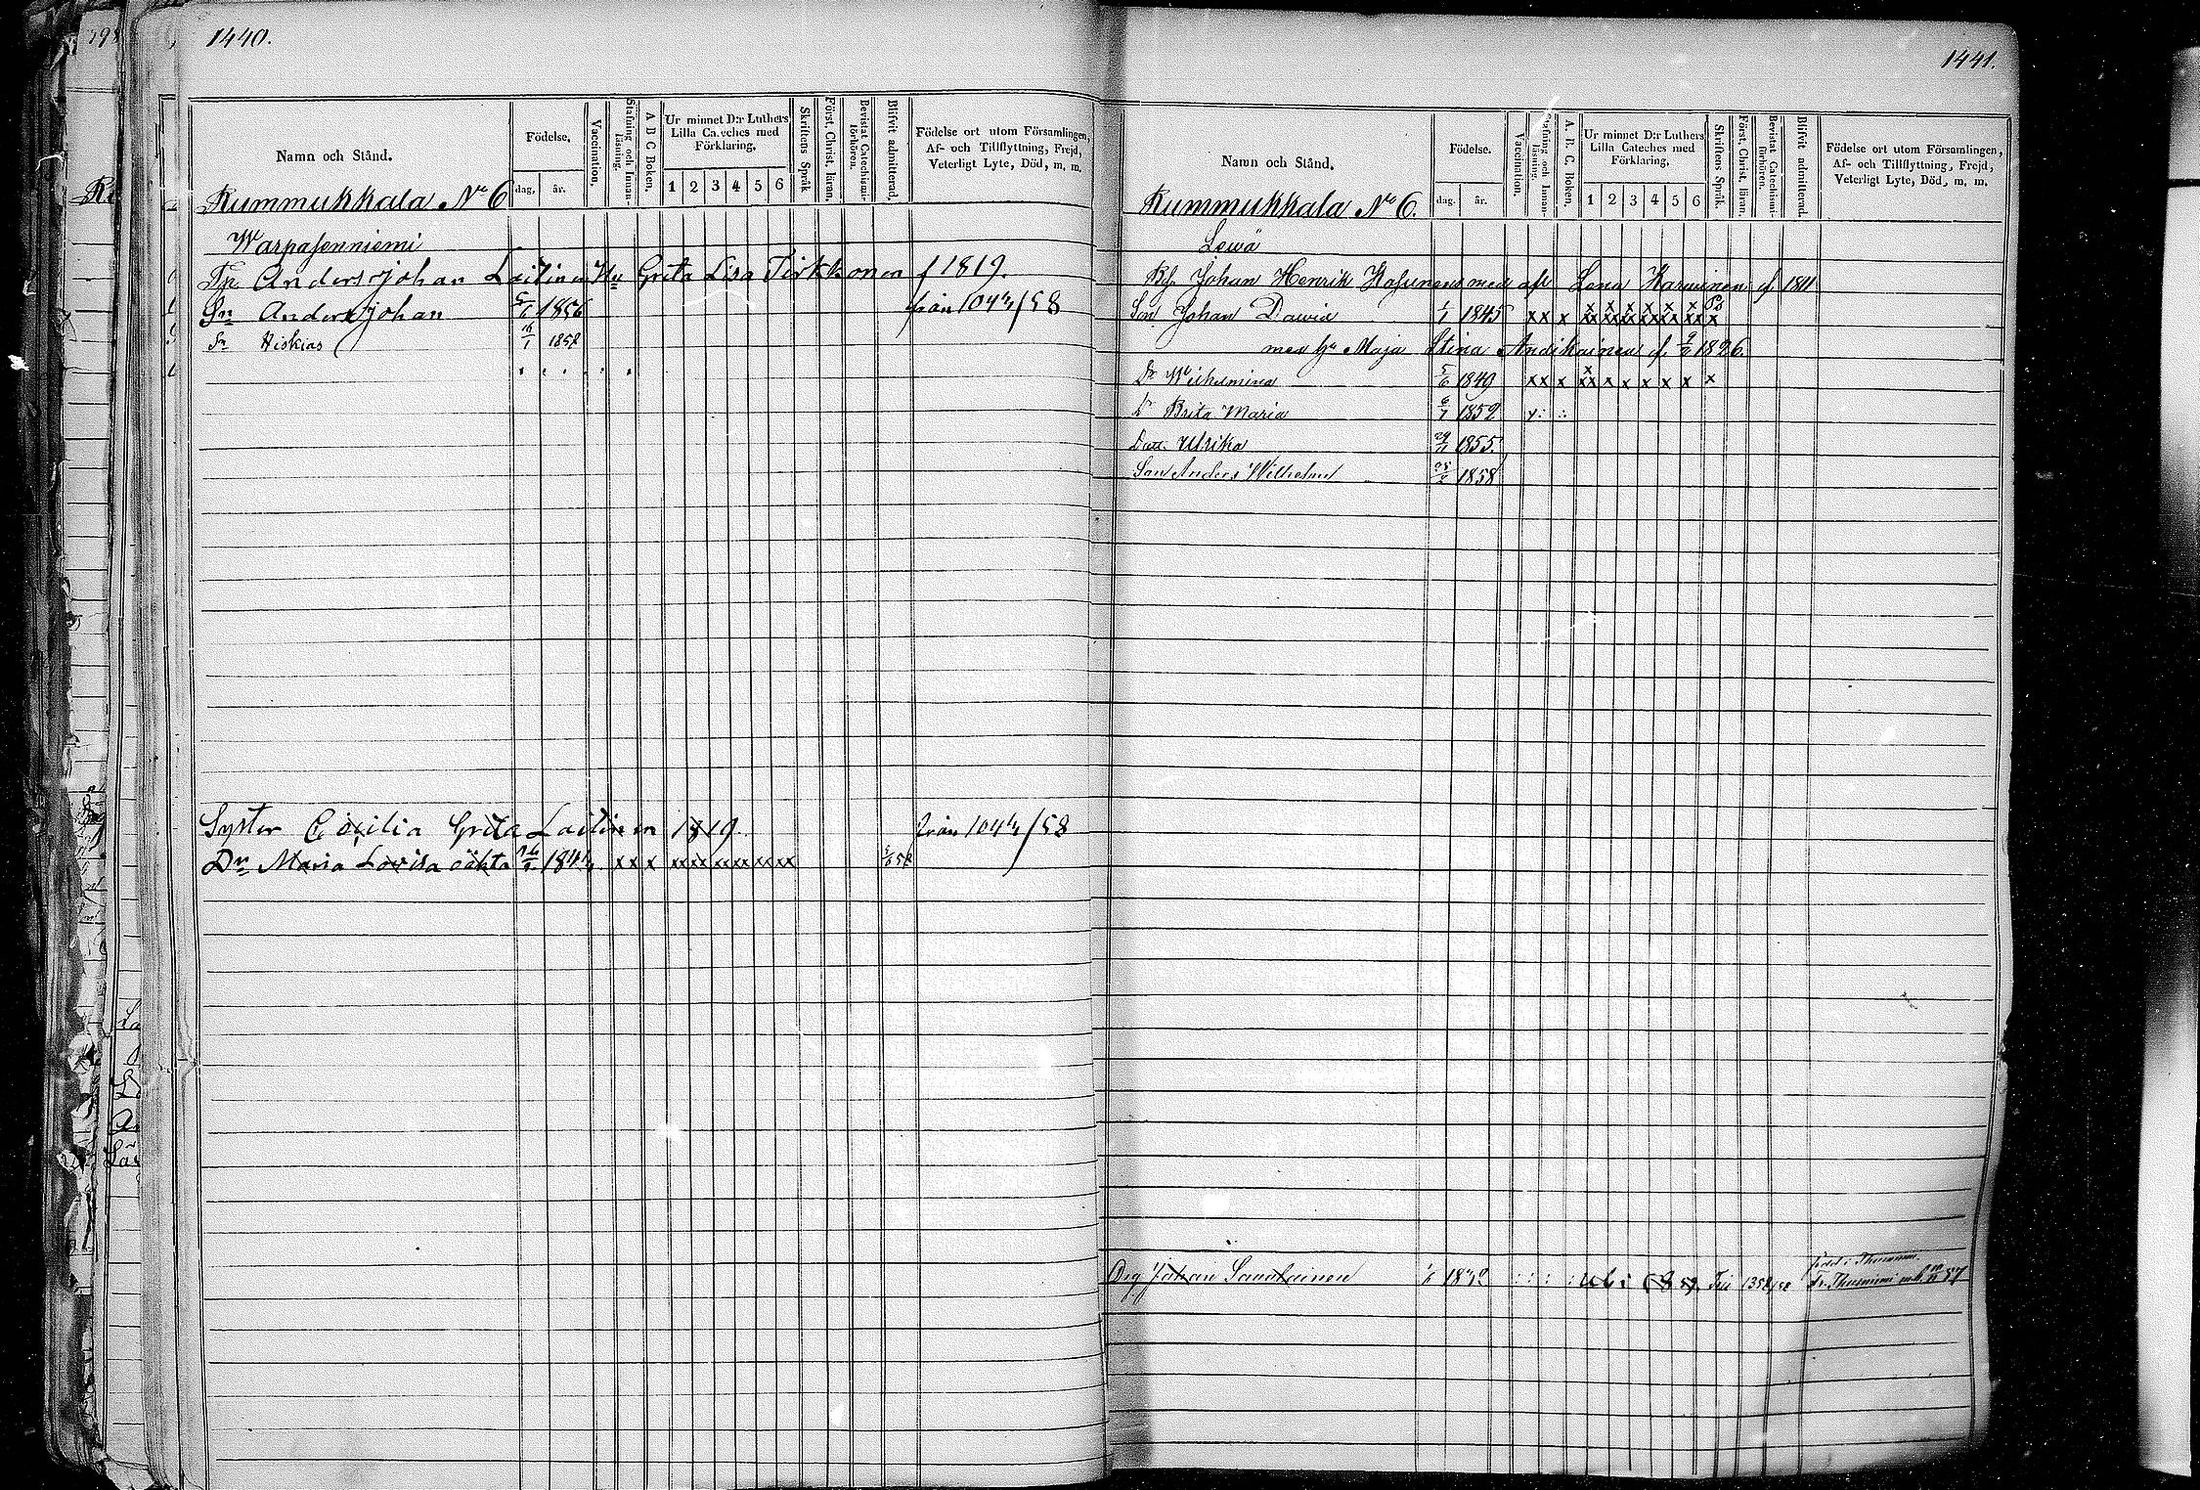 1440.
Namn och Stånd.
Födelse.
dag, år.
Vaccination.
Stafning och Innan-läsning.
A B C Boken.
Ur minnet D:r Luthers Lilla Cateches med Förklaring.
1 2 3 4 5 6
Skriftens Språk
Först. Christ. läran.
Bevistat Catechismi-förhören.
Blifvit admitterad.
Födelse ort utom Församlingen, Af- och Tillflyttning, Frejd, Veterligt Lyte, Död, m. m.
Rummukkala No 6
Warpasenniemi
Tp. Anders Johan Laitinen Hu Grita Lisa Tirkkonen f 1819.
Sn Anders Johan 1856 från 1044/58
Sn Hiskias 16/1 1852
Syster Cecilia Grita Laitinen 1819. från 1044/58
Dr Maria Lovisa oäkta 1844. x x x xx xx xx xx xx xx
1441.
Namn och Stånd.
Födelse.
dag. år.
Vaccination.
Stafning och Innan-läsning.
A. B. C. Boken.
Ur minnet D:r Luthers Lilla Cateches med Förklaring.
1 2 3 4 5 6
Skriftens Språk.
Först. Christ. läran.
Bevistat Catechismi-förhören.
Blifvit admitterad.
Födelse ort utom Församlingen, Af- och Tillflyttning, Frejd, Veterligt Lyte, Död, m. m.
Rummukkala No 6.
Lewä
Johan Henrik Kasurinens med Lena Karvinen f. 1811
Son Johan David 1/1 1845 xx x
med hu Maja Stina Antikainen f. 1826.
Dr Wilhelmina 5/6 1849 xx x xx x x x x x x
Dr Brita Maria 6/7 1852
Dott. Ulrika 1855.
Son Anders Wilhelm 1858
Drg Johan Savolainen 1832 1352/52
född i Thusniemi
fr. Thusniemi